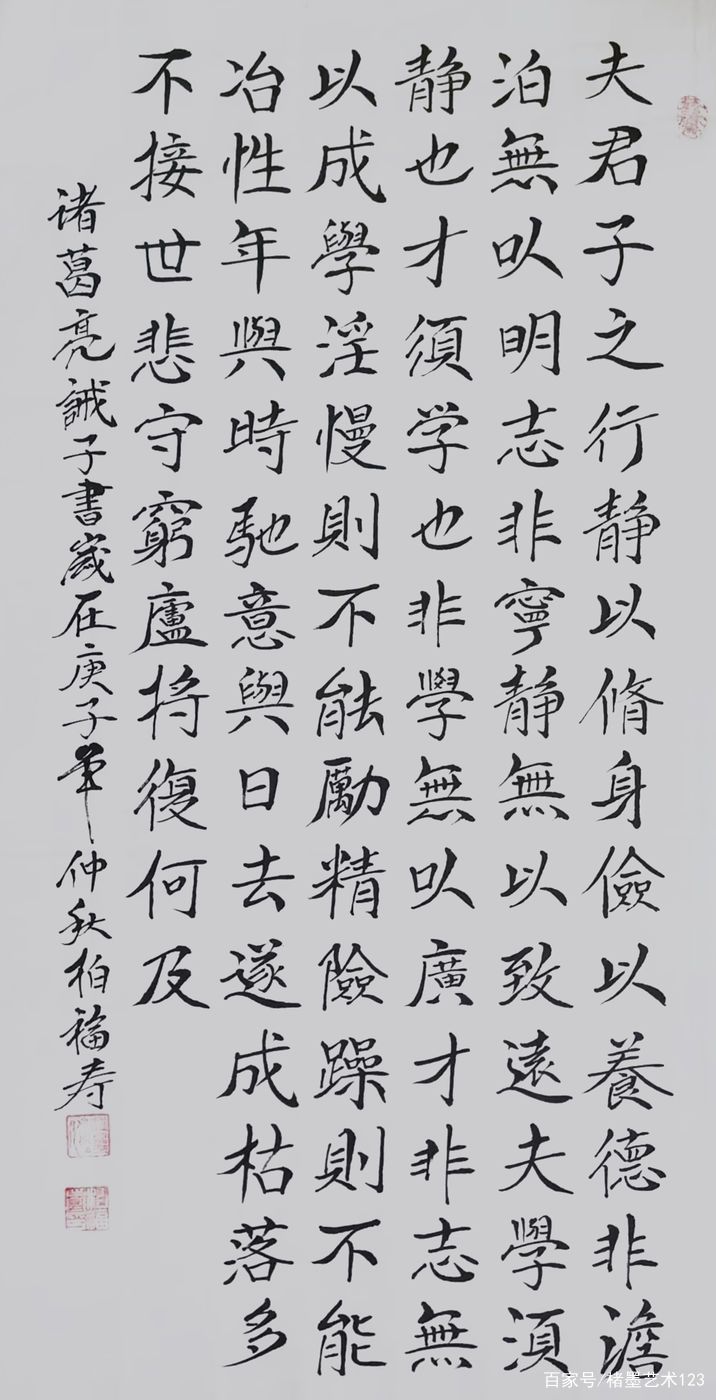 夫君子之行静以脩身儉以養德非澹
泊無以明志非寧静無以致遠夫學須
静也才須学也非學無以廣才非志無
以成學淫慢則不能勵精險躁則不能
冶性年與時馳意與日去遂成枯落多
不接世悲守窮廬将復何及
诸葛亮誡子書嵗在庚子年仲秋柏福寿
百家号/楮墨艺术123